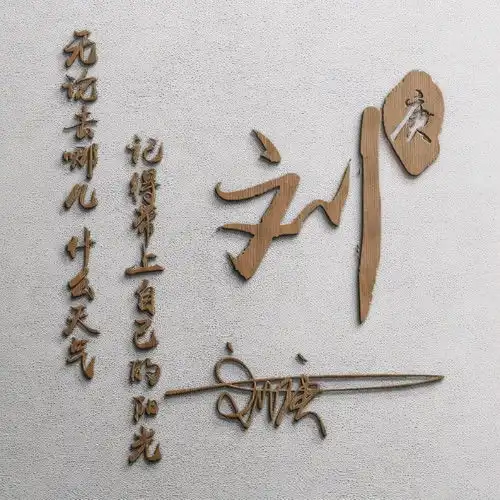 无论去哪儿 什么天气
记得带上自己的阳光
刘
庚